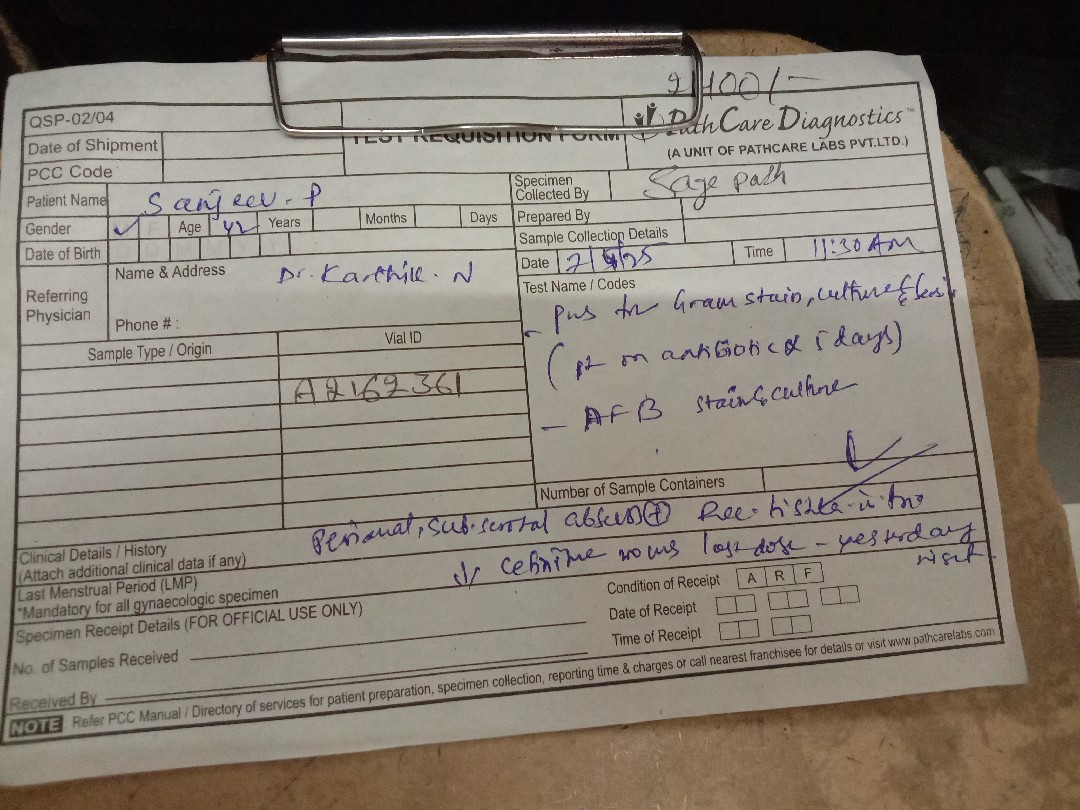 2400/-
QSP-02/04
TEST REQUISITION FORM
PathCare Diagnostics™
(A UNIT OF PATHCARE LABS PVT.LTD.)
Date of Shipment
PCC Code
Patient Name Sanjeev. P
Specimen Collected By Sage path
Gender ✓ F Age 42 Years Months Days
Prepared By
Date of Birth
Sample Collection Details
Date Time 11:30 AM
Referring Physician
Name & Address Dr. Karthik. N
Phone # :
Test Name / Codes
- pus for Gram stain, culture &
(pt on antibiotic 5 days)
- AFB stain & culture
Sample Type / Origin
Vial ID
A2162361
Number of Sample Containers
Clinical Details / History
(Attach additional clinical data if any)
Perianal, sub-scrotal
last dose - yesterday
Last Menstrual Period (LMP)
*Mandatory for all gynaecologic specimen
Specimen Receipt Details (FOR OFFICIAL USE ONLY)
Condition of Receipt A R F
Date of Receipt
Time of Receipt
No. of Samples Received
Received By
NOTE Refer PCC Manual / Directory of services for patient preparation, specimen collection, reporting time & charges or call nearest franchisee for details or visit www.pathcarelabs.com